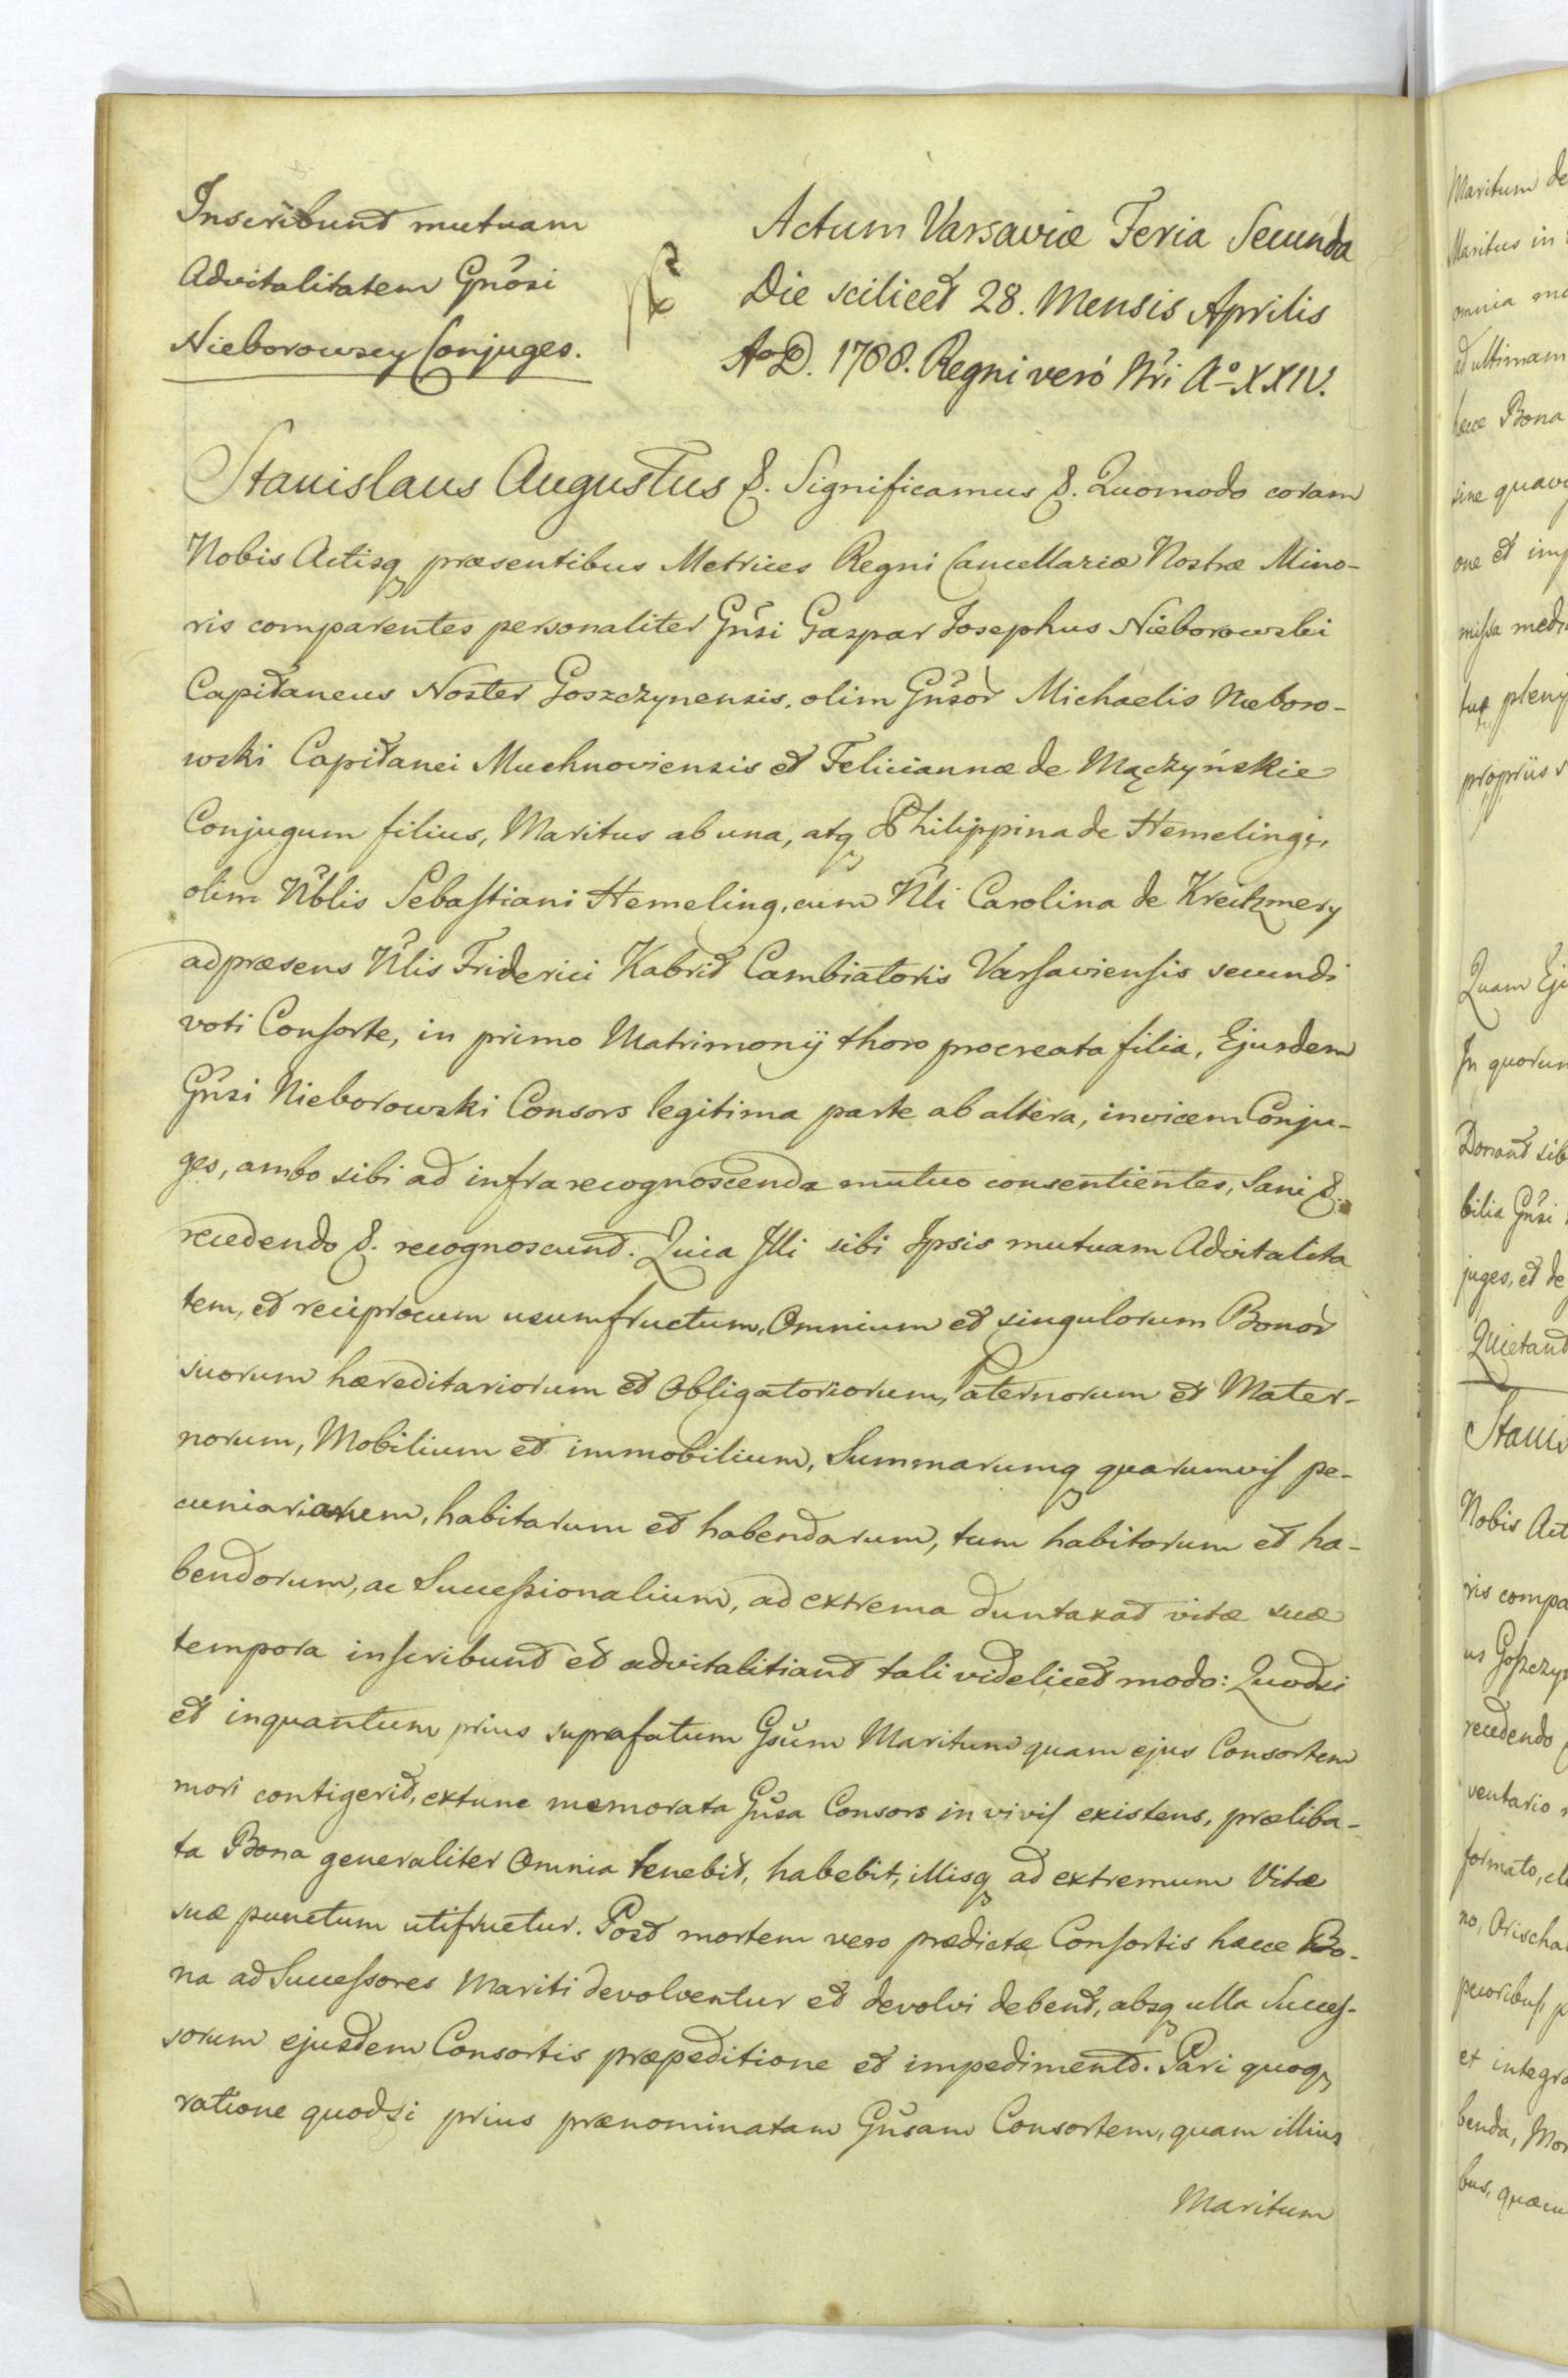 Inscribunt mutuam
Advitalitatem Gnosi
Nieborowscy Conjuges.
Actum Varsaviæ Feria Secunda
Die scilicet 28. Mensis Aprilis
AoD. 1788. Regni veró Nri Ao XXIV.
Stanislaus Augustus &. Significamus &. Quomodo coram
Nobis Actisq præsentibus Metrices Regni Cancellariæ Nostræ Mino-
ris comparentes personaliter Gnsi Gaspar Josephus Nieborowski
Capitaneus Noster Goszczynensis, olim Gnsor Michaelis Nieboro-
wski Capitanei Muchnoviensis et Feliciannæ de Mączyńskie
Conjugum filius, Maritus ab una, atq Philippina de Hemelingi,
olim Nblis Sebastiani Hemeling, cum Nli Carolina de Kreitzmery
ad præsens Nlis Friderici Kabrit Cambiatoris Varsaviensis secundi
voti Consorte, in primo Matrimonij thoro procreata filia, Ejusdem
Gnsi Nieborowski Consors legitima parte ab altera, invicem Conju-
ges, ambo sibi ad infra recognoscenda mutuo consentientes, Sani &.
recedendo &. recognoscunt. Quia Illi sibi Ipsis mutuam Advitalita
tem, et reciprocum usumfructum, Omnium et singulorum Bonor
suorum hæreditariorum et Obligatoriorum, Paternorum et Mater-
norum, Mobilium et immobilium, Summarumq quarumvis pe-
cuniariarum, habitarum et habendarum, tum habitorum et ha-
bendorum, ac Successionalium, ad extrema duntaxat vitæ suæ
tempora inscribunt et advitalitiant tali videlicet modo: Quodsi
et inquantum prius suprafatum Gsum Maritum quam ejus Consortem
mori contigerit, extunc memorata Gnsa Consors in vivis existens, præliba-
ta Bona generaliter Omnia tenebit, habebit, illisq ad extremum Vitæ
suæ punctum utifruetur. Post mortem vero prædictæ Consortis hæcce Bo-
na ad Successores Mariti devolventur et devolvi debent, absq ulla Succes-
sorum ejusdem Consortis præpeditione et impedimento. Pari quoq
ratione quodsi prius prænominatam Gnsam Consortem, quam illius
Maritum
Maritum de
Maritus in
omnia mo
ad ultimam
hæcce Bona
sine quavi
one et imp
missa medi
tuq pleny
propriis s
Quam Ej
In quorum
Donant sib
bilia Gnsi
juges, et de
Quietant
Stanis
Nobis Act
ris compa
us Goszczy
recedendo
ventario
formato, el
no, Orischa
pecoribus, p
et integra
benda, Mo
bus, quæcu